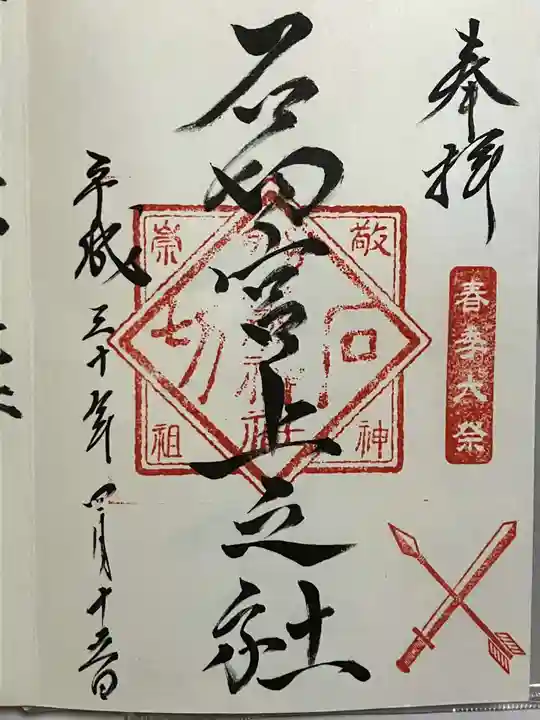 奉拝
春季大祭
石切宮上之社
敬神
崇祖
石切
平成三十年四月十五日